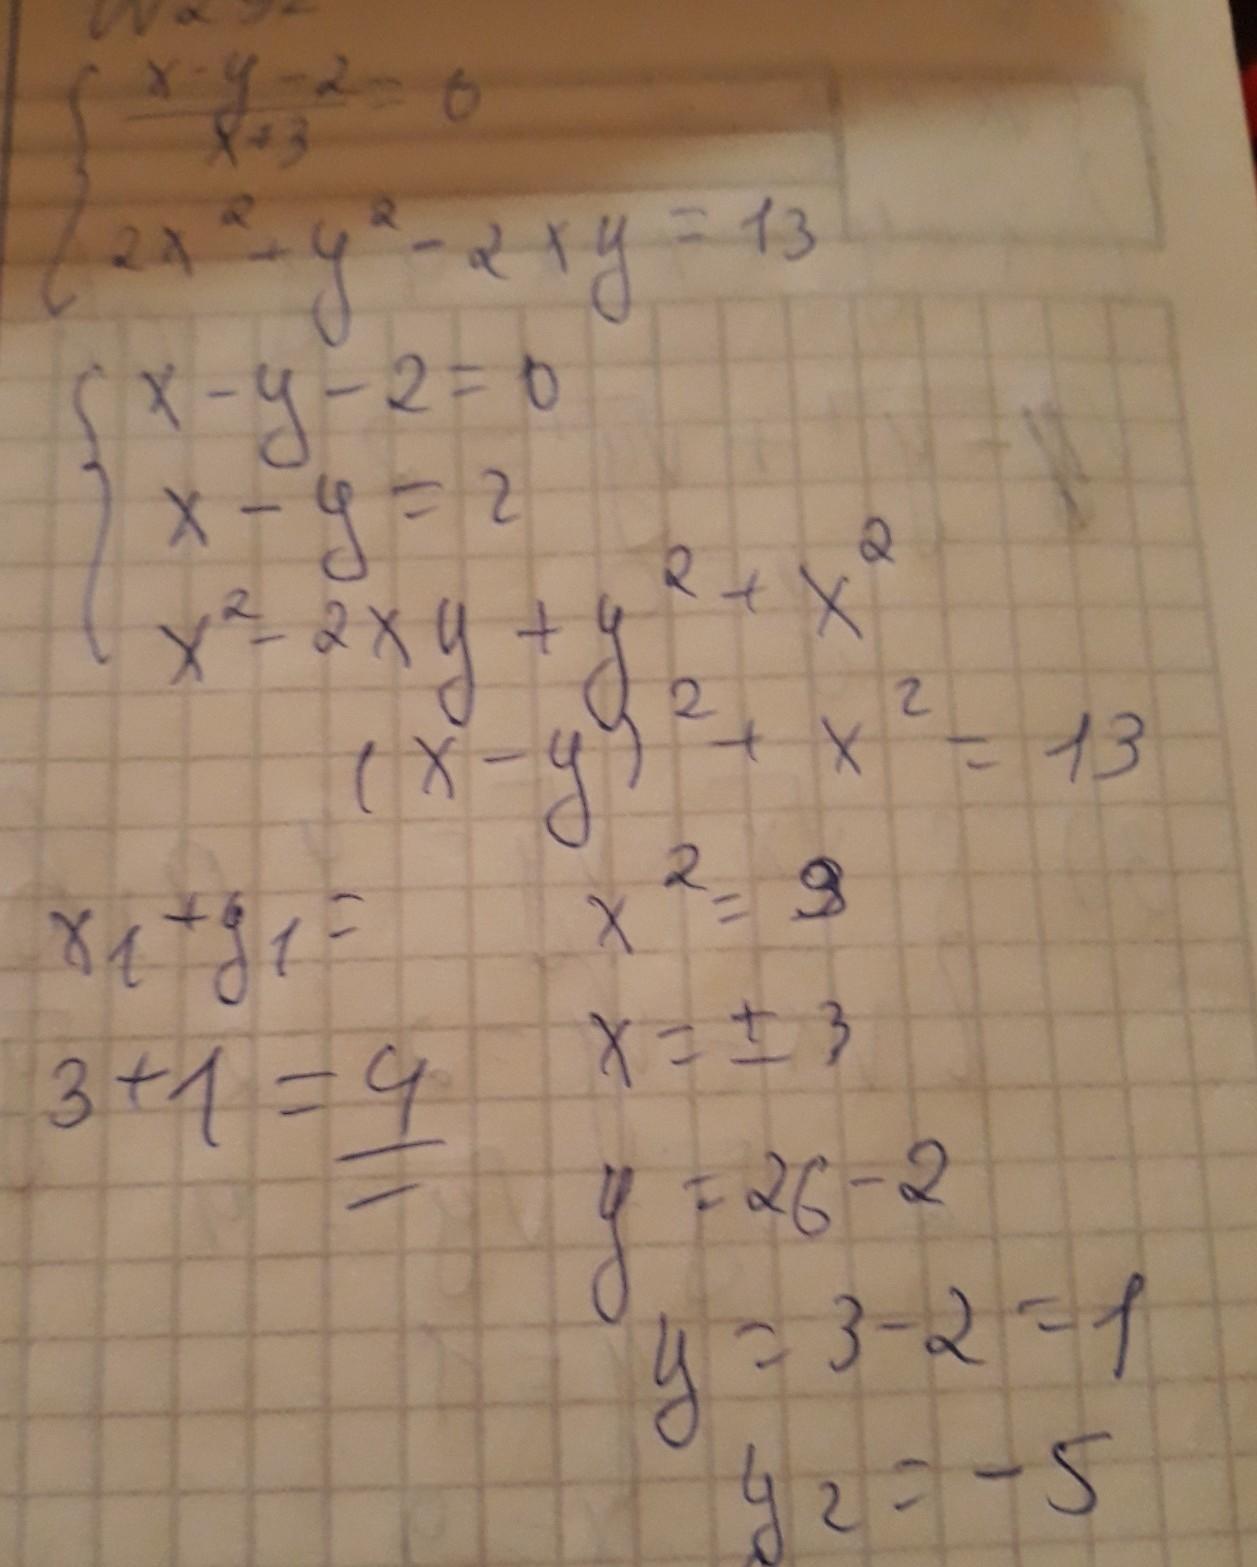 x-y-2
───── = 0
x+3
2x² + y² - 2xy = 13
x - y - 2 = 0
x - y = 2
x² - 2xy + y² + x²
(x - y)² + x² = 13
x² = 9
x₁ + y₁ =
x = ± 3
3 + 1 = 4
y = 26 - 2
y = 3 - 2 = 1
y₂ = -5